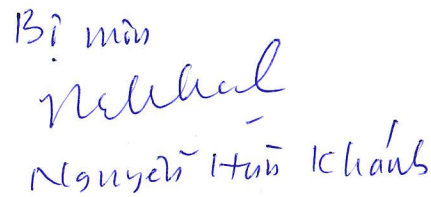 Bị mìn
Nguyễn Hữu Khánh